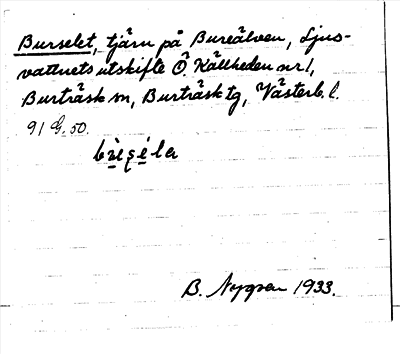 Burselet, tjärn på Bureälven, Ljus-
vattnets utskifte Ö. Källheden nr 1,
Burträsk sn, Burträsk tg, Västerb. l.
91 G. 50.
B. Nygren 1933.